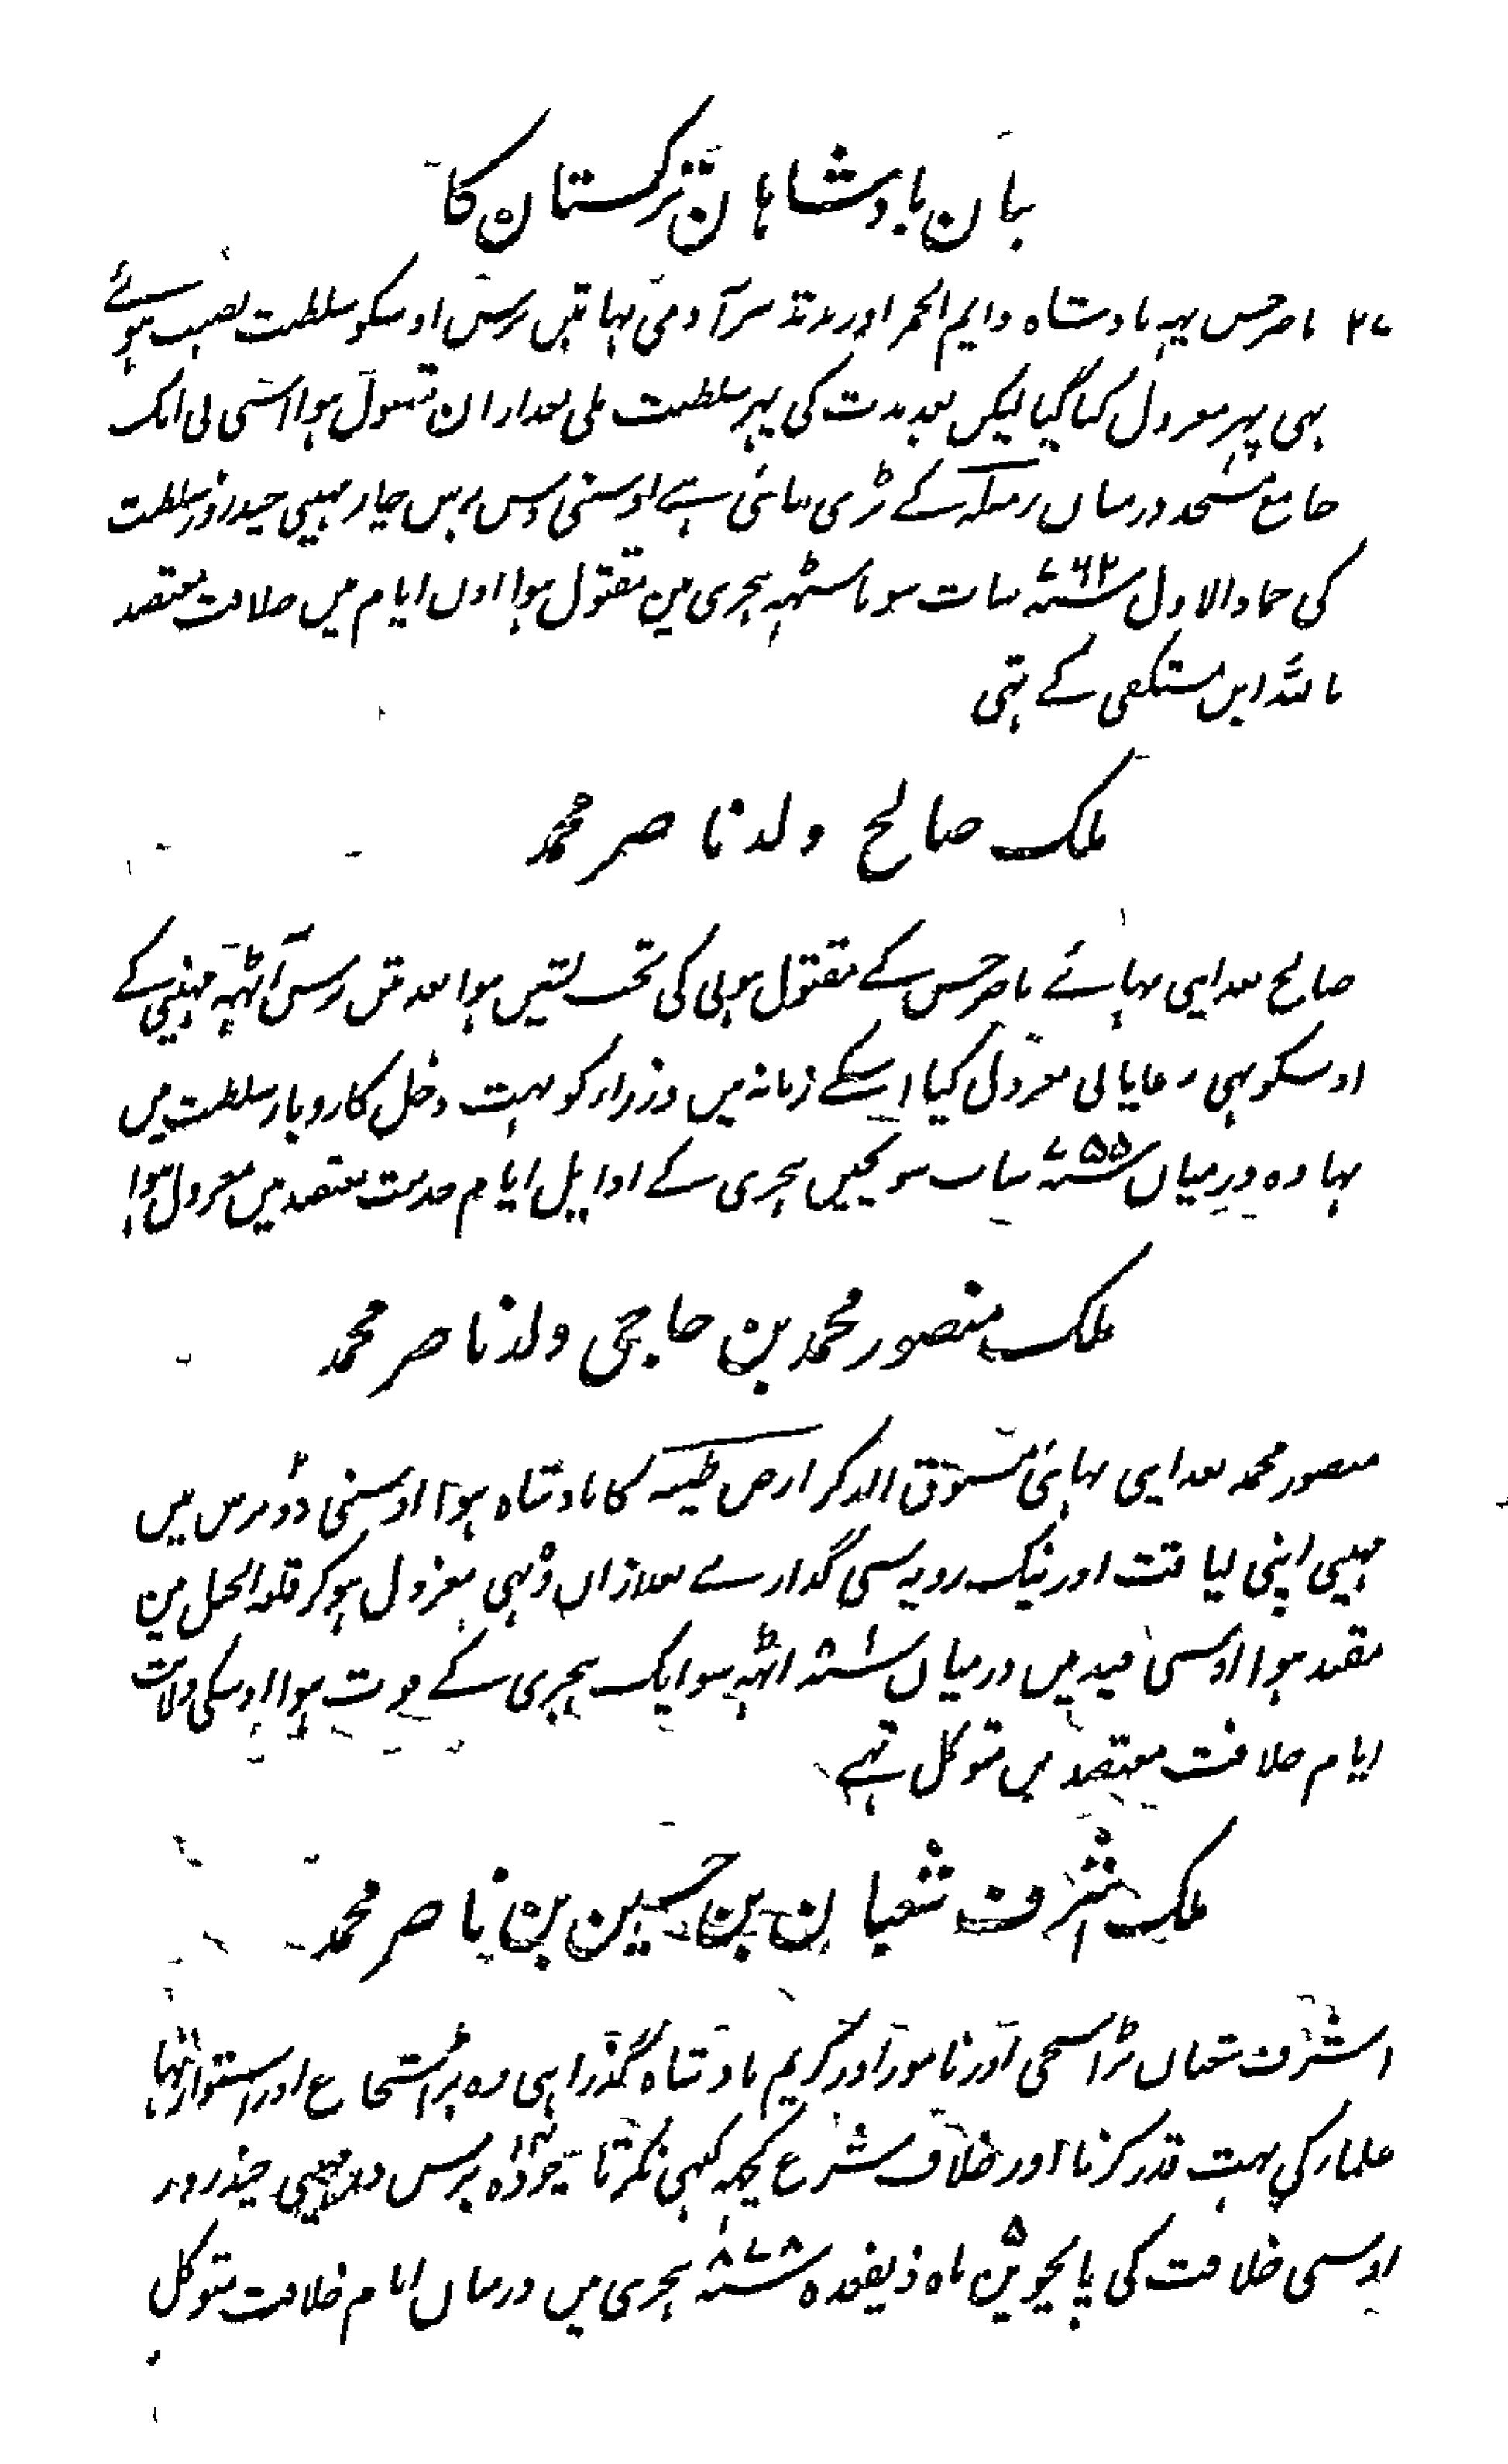 بیان بادشاہان ترکستان کا
۲۷ ناصر حسن یہہ بادشاہ دایم الخمر اور رند سرآدمی تہا تین برس اوسکو سلطنت نصیب ہوئے
ہی پہر معزول کیا گیا لیکن بعد مدت کی پہر سلطنت ملی بعد ازان مقتول ہوا اسی نی ایک
جامع مسجد درمیان رمیلہ کے بڑی بنائی ہے اوسنی دس برس چار مہینی چند روز سلطنت
کی جماد الاول سنہ۷۶۲ سات سو باسٹہہ ہجری مین مقتول ہوا اون ایام میں خلافت معتضد
باللہ ابن مستکفی کے تہی
ملک صالح ولد ناصر محمد
صالح بعد اپنی بہائے ناصر حسن کے مقتول ہونی کی تخت نشین ہوا بعد تین برس آٹہہ مہینی کے
اوسکو بہی رعایا نی معزول کیا اسکے زمانہ میں وزراء کو بہت دخل کاروبار سلطنت میں
تہا وہ درمیاں سنہ۷۵۵ سات سو پچپن ہجری کے اوایل ایام خلافت معتضد میں معزول ہوا
ملک منصور محمد بن حاجی ولد ناصر محمد
منصور محمد بعد اپنی بہائی مسبوق الذکر ارض طیبہ کا بادشاہ ہوا اوسنی دو برس تین
مہینی اپنی لیاقت اور نیک رویہ سی گذارے بعد ازاں وہی معزول ہوکر قلعہ الجبل مین
مقید ہوا اوسی قید میں درمیاں سنہ۸۰۱ اٹہہ سو ایک ہجری کے فوت ہوا اوسکی ولایت
ایام خلافت معتضد بن متوکل تہے
ملک اشرف شعبان بن حسین بن ناصر محمد
اشرف شعبان بڑا سخی اور نامور اور کریم بادشاہ گذرا ہی وہ بڑا شجاع اور استوار تہا
علماء کی بہت قدر کرتا اور خلاف شرع کچہہ کبہی نکرتا چودہ۱۴ برس دو مہینی چند روز
اوسی خلافت کی پانچوین۵ ماہ ذیقعدہ سنہ۷۷۸ ہجری میں درمیان ایام خلافت متوکل